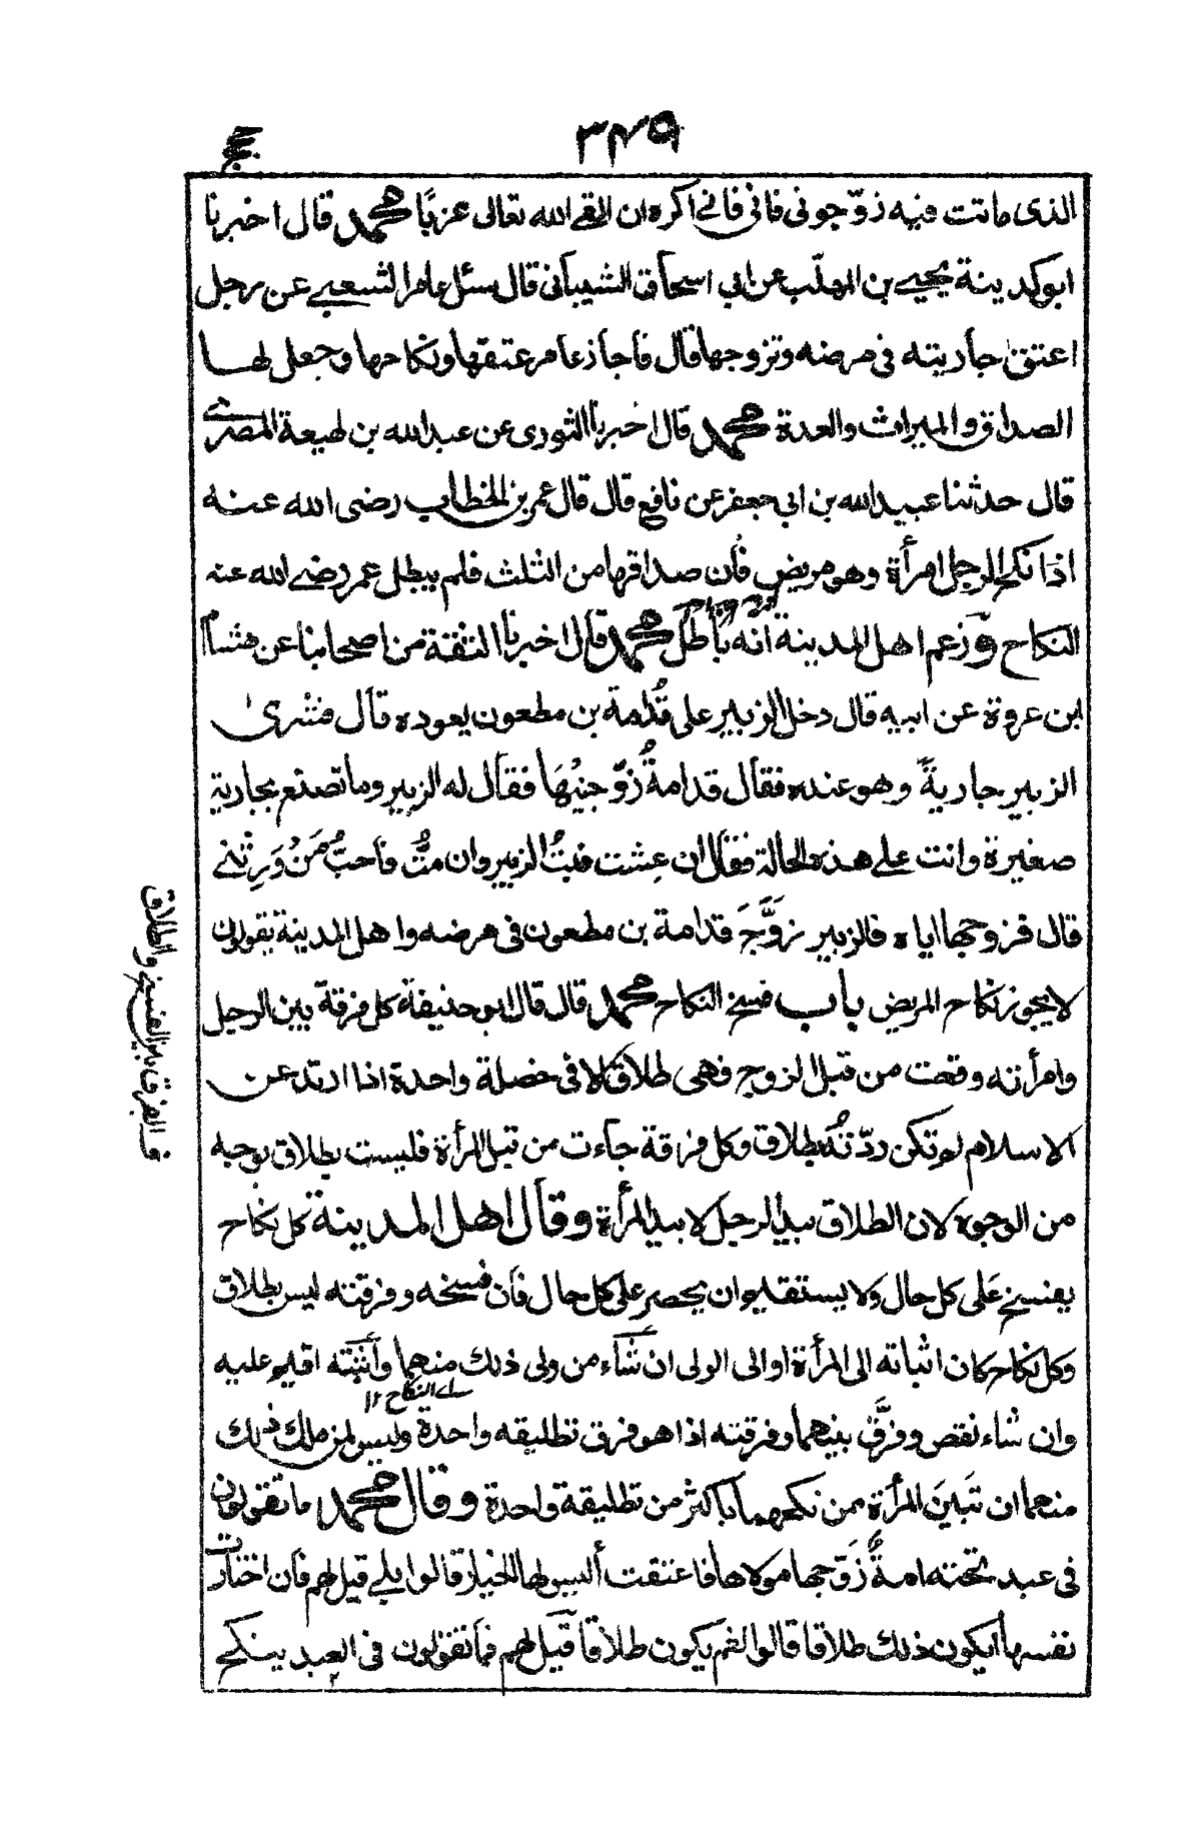 ٣٤٩
حج
الذى ماتت فيه زوّجونى فانى فانے اكره ان القے الله تعالى عزبًا محمد قال اخبرنا
ابو كدينة يحيے بن المهلّب عن ابي اسحاق الشيبانى قال سئل عامر الشعبے عن رجل
اعتق جاريته فى مرضه وتزوجها قال فاجاز عامر عتقها ونكاحها وجعل لها
الصداق والميراث والعدة محمد قال اخبرنا الثورى عن عبد الله بن لهيعة المصرے
قال حدثنا عبيد الله بن ابي جعفر عن نافع قال قال عمر بن الخطاب رضى الله عنه
اذا نكح الرجل امرأة وهو مريض فأن صداقها من الثلث فلم يبطل عمر رضے الله عنه
النكاح وزعم اهل المدينة انه باطل محمد قال اخبرنا الثقة من اصحابنا عن هشام
ابن عروة عن ابيه قال دخل الزبير على قُدامة بن مطعون يعوده قال فشرىٰ
الزبير جاريةً وهو عنده فقال قدامةُ زوّجنِيْهَا فقال له الزبير وما تصنع بجارية
صغيرة وانت علے هذه الحالة فقال ان عِشت فبنتُ الزبير وان متُّ فاحبُّ مَنْ وَرِثَنے
قال فزوجها اياه فالزبير زوَّجَ قدامة بن مطعون فى مرضه واهل المدينة يقولون
لا يجوز نكاح المريض باب فسخ النكاح محمد قال قال ابو حنيفة كل فرقة بين الرجل
وامرأته وقعت من قبل الزوج فهى طلاق الا فى خصلة واحدة اذا ارتد عن
الاسلام لم تكن ردّتُه بطلاق وكل فرقة جاءت من قبل المرأة فليست بطلاق بوجه
من الوجوه لان الطلاق بيد الرجل لا بيد المرأة وقال اهل المدينة كل نكاح
يفسخ على كل حال ولا يستقيم ان يحصر على كل حال فان فسخه وفرقته ليس بطلاق
وكل نكاح كان اثباته الى المرأة او الى الولى ان شاء من ولى ذلك منهما واثبته اقيم عليه
اے النكاح ١٢
وان شاء نقص وفرَّق بينهما وفرقته اذا هو فرق تطليقه واحدة وليس لمن ملك ذلك
منهما ان تَبينَ المرأة ممن نكحها باكثر من تطليقة واحدة وقال محمد ما تقولون
فى عبد تحته امةٌ زَوّجها مولاها فاعتقت أليس لها الخيار قالوا بلے قيل لهم فان اختارت
نفسها أيكون ذلك طلاقا قالوا نعم يكون طلاقا قيل لهم فما تقولون فى العبد ينكح